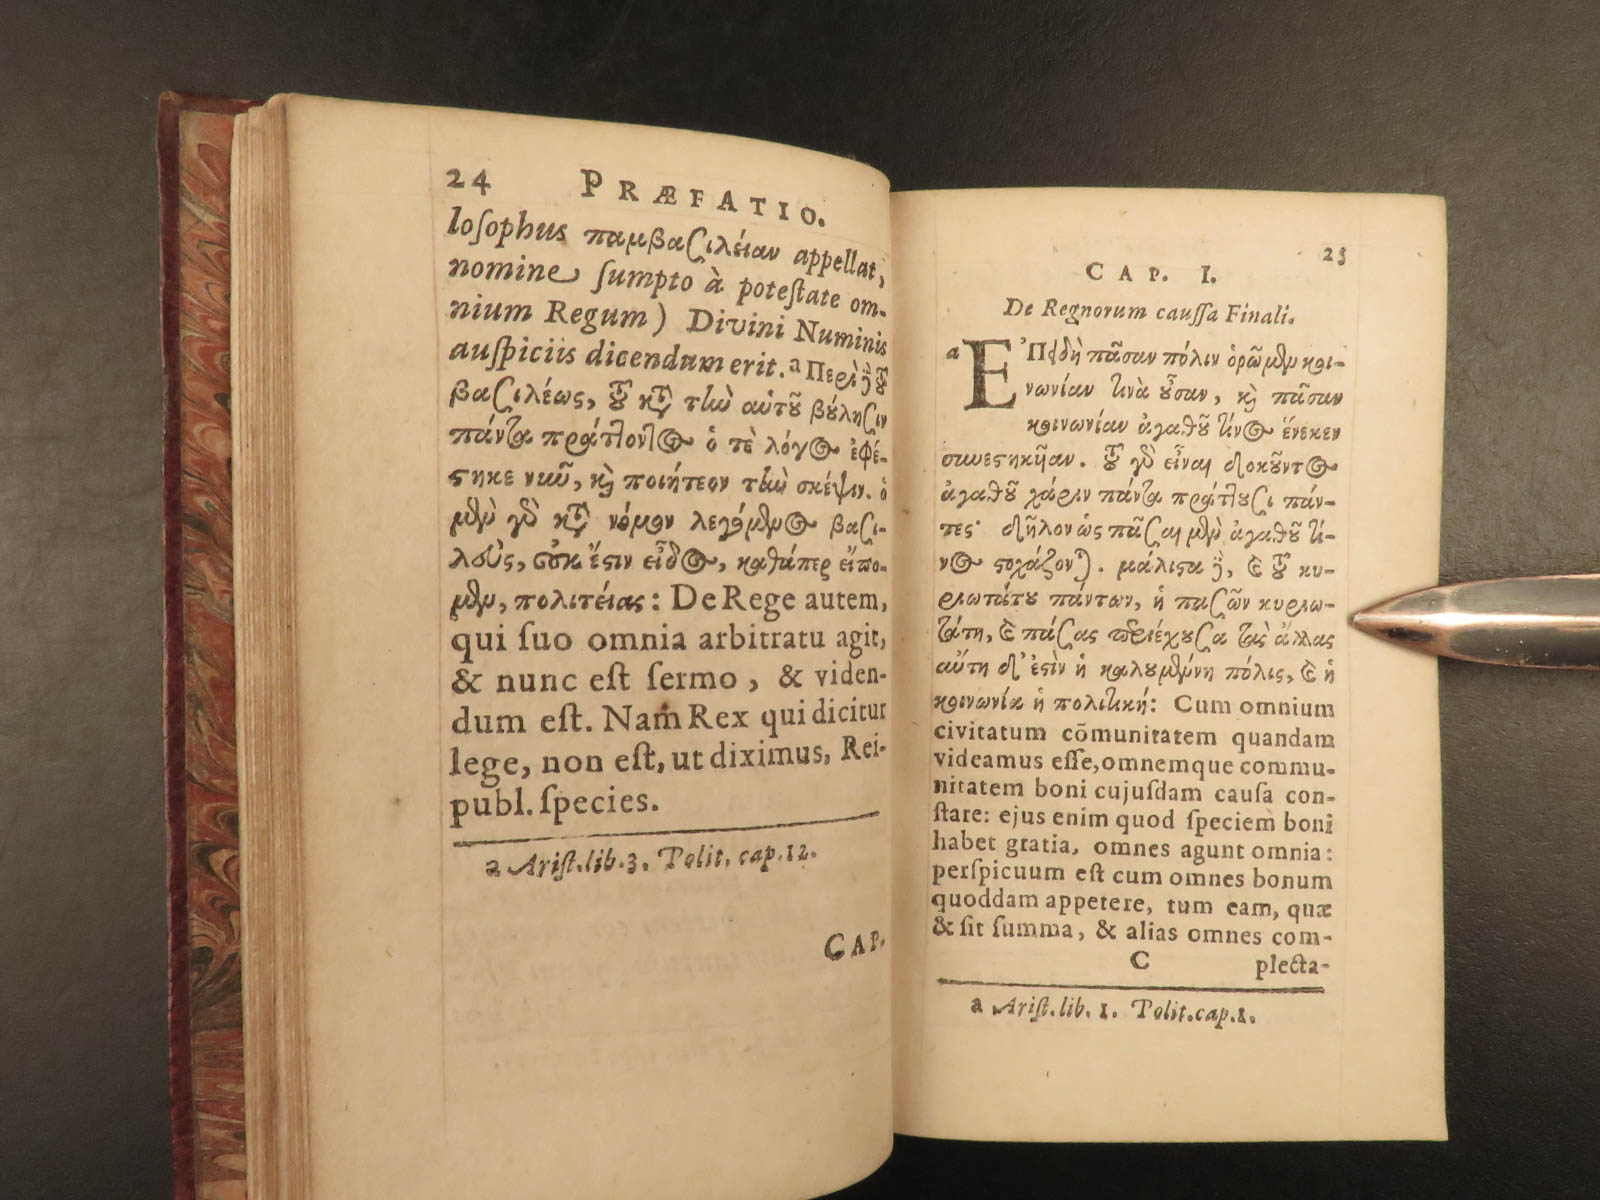 24 PRÆFATIO.
loſophus παμβασιλείαν appellat,
nomine ſumpto à poteſtate om-
nium Regum) Divini Numinis
auſpiciis dicendum erit. a Περὶ ϳ τοῦ
βασιλέως, τοῦ κατὰ τὴν αὑτοῦ βούλησιν
πάντα πράττοντος ὁ τὲ λόγος ἐφέ-
στηκε νῦν, καὶ ποιήτεον τὴν σκέψιν. ὁ
μὲν γὸ κατὰ νόμον λεγόμενος βασι-
λοὺς, οὐκ ἔστιν εἶδος, καθάπερ εἴπο-
μεν, πολιτείας: De Rege autem,
qui ſuo omnia arbitratu agit,
& nunc eſt ſermo, & viden-
dum eſt. Nam Rex qui dicitur
lege, non eſt, ut diximus, Rei-
publ. ſpecies.
a Ariſt. lib. 3. Polit. cap. 12.
CAP.
25
CAP. I.
De Regnorum cauſſa Finali.
a ἘΠειδὴ πᾶσαν πόλιν ὁρῶμεν κοι-
νωνίαν τινὰ οὖσαν, καὶ πᾶσαν
κοινωνίαν ἀγαθοῦ τινος ἕνεκεν
συνεστηκῆαν. τοῦ γὸ εἶναι δοκοῦντος
ἀγαθοῦ χάριν πάντα πράττουσι πάν-
τες· δῆλον ὡς πᾶσαι μὲν ἀγαθοῦ τι-
νος στοχάζονται. μάλιστα ϳ, καὶ τοῦ κυ-
ριωτάτου πάντων, ἡ πασῶν κυριω-
τάτη, καὶ πάσας περιέχουσα τὰς ἄλλας
αὕτη δ' ἐστὶν ἡ καλουμένη πόλις, καὶ ἡ
κοινωνία ἡ πολιτική: Cum omnium
civitatum cōmunitatem quandam
videamus eſſe, omnemque commu-
nitatem boni cujuſdam cauſa con-
ſtare: ejus enim quod ſpeciem boni
habet gratia, omnes agunt omnia:
perſpicuum eſt cum omnes bonum
quoddam appetere, tum eam, quæ
& ſit ſumma, & alias omnes com-
C plecta-
a Ariſt. lib. 1. Polit. cap. 1.